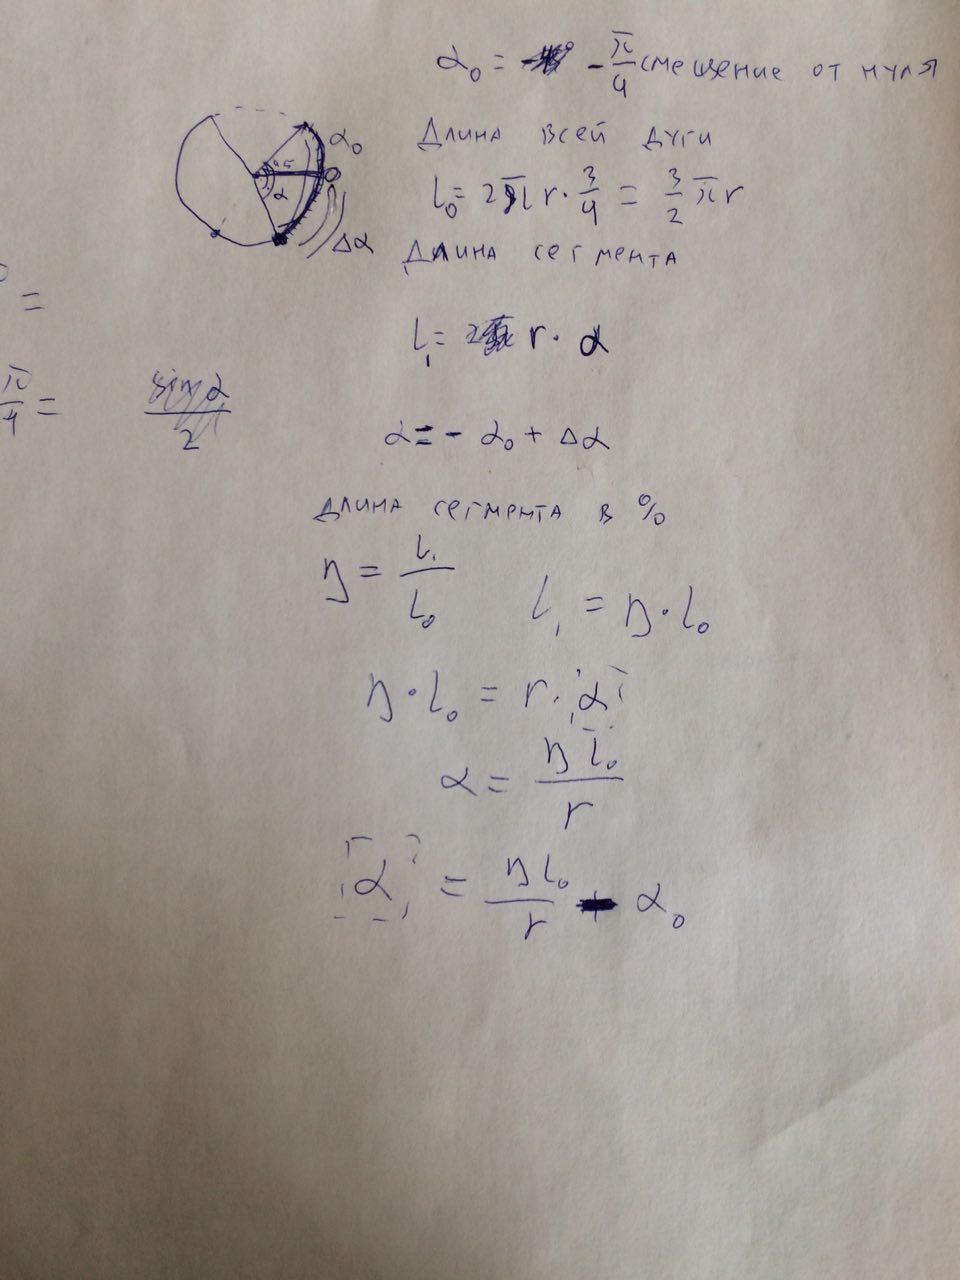 α₀ = - π/4 смещение от нуля
α₀
45
α
Δα
Длина всей дуги
l₀ = 2πr · 3/4 = 3/2 πr
Длина сегмента
=
l₁ = r · α
π/4 =
sin α / 2
α = - α₀ + Δα
длина сегмента в %
η = l₁ / l₀
l₁ = η · l₀
η · l₀ = r · α
α = η l₀ / r
α = η l₀ / r + α₀